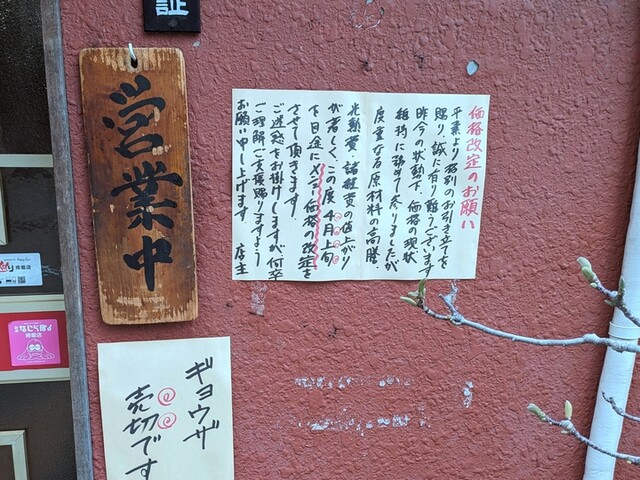 証
営業中
価格改定のお願い
平素より格別のお引き立てを
賜り、誠に有り難うございます
昨今の状勢下、価格の現状
維持に努めて参りましたが
度重なる原材料の高騰
光熱費・諸経費の値上がり
が著しく、この度4月上旬
を目途にメニュー価格の改定を
させて頂きます
ご迷惑をお掛けしますが何卒
ご理解ご支援賜りますよう
お願い申し上げます 店主
ギョウザ
売切です
掲載店
なじら保
掲載店